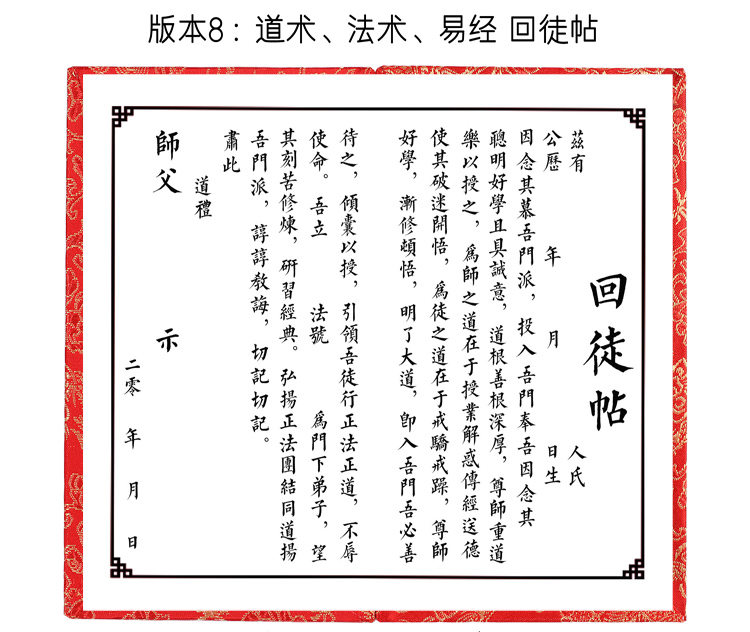 版本8：道术、法术、易经 回徒帖
回徒帖
茲有 人氏
公歷 年 月 日生
因念其慕吾門派，投入吾門奉吾因念其
聰明好學且具誠意，道根善根深厚，尊師重道
樂以授之，爲師之道在于授業解惑傳經送德
使其破迷開悟，爲徒之道在于戒驕戒躁，尊師
好學，漸修頓悟，明了大道，即入吾門吾必善
待之，傾囊以授，引領吾徒行正法正道，不辱
使命。吾立 法號 爲門下弟子，望
其刻苦修煉，研習經典。弘揚正法團結同道揚
吾門派，諄諄教誨，切記切記。
肅此
道禮
師父 示
二零 年 月 日